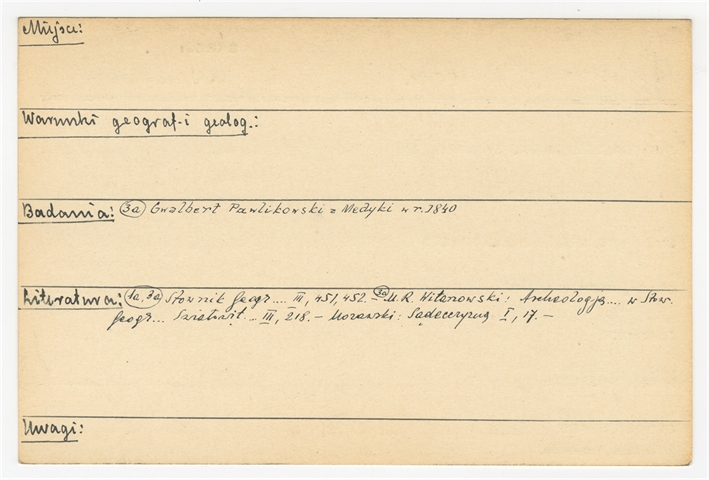 Miejsce:
Warunki geograf. i geolog.:
Badania: (3a) Gwalbert Pawlikowski z Medyki w r. 1840
Literatura: (1a, 3a) Słownik Geogr.... III, 451, 452. – (3a) M. R. Witanowski: Archeologja.... w Słow.
Geogr... Światowit... III, 218. – Morawski: Sądecczyzna I, 17. –
Uwagi: